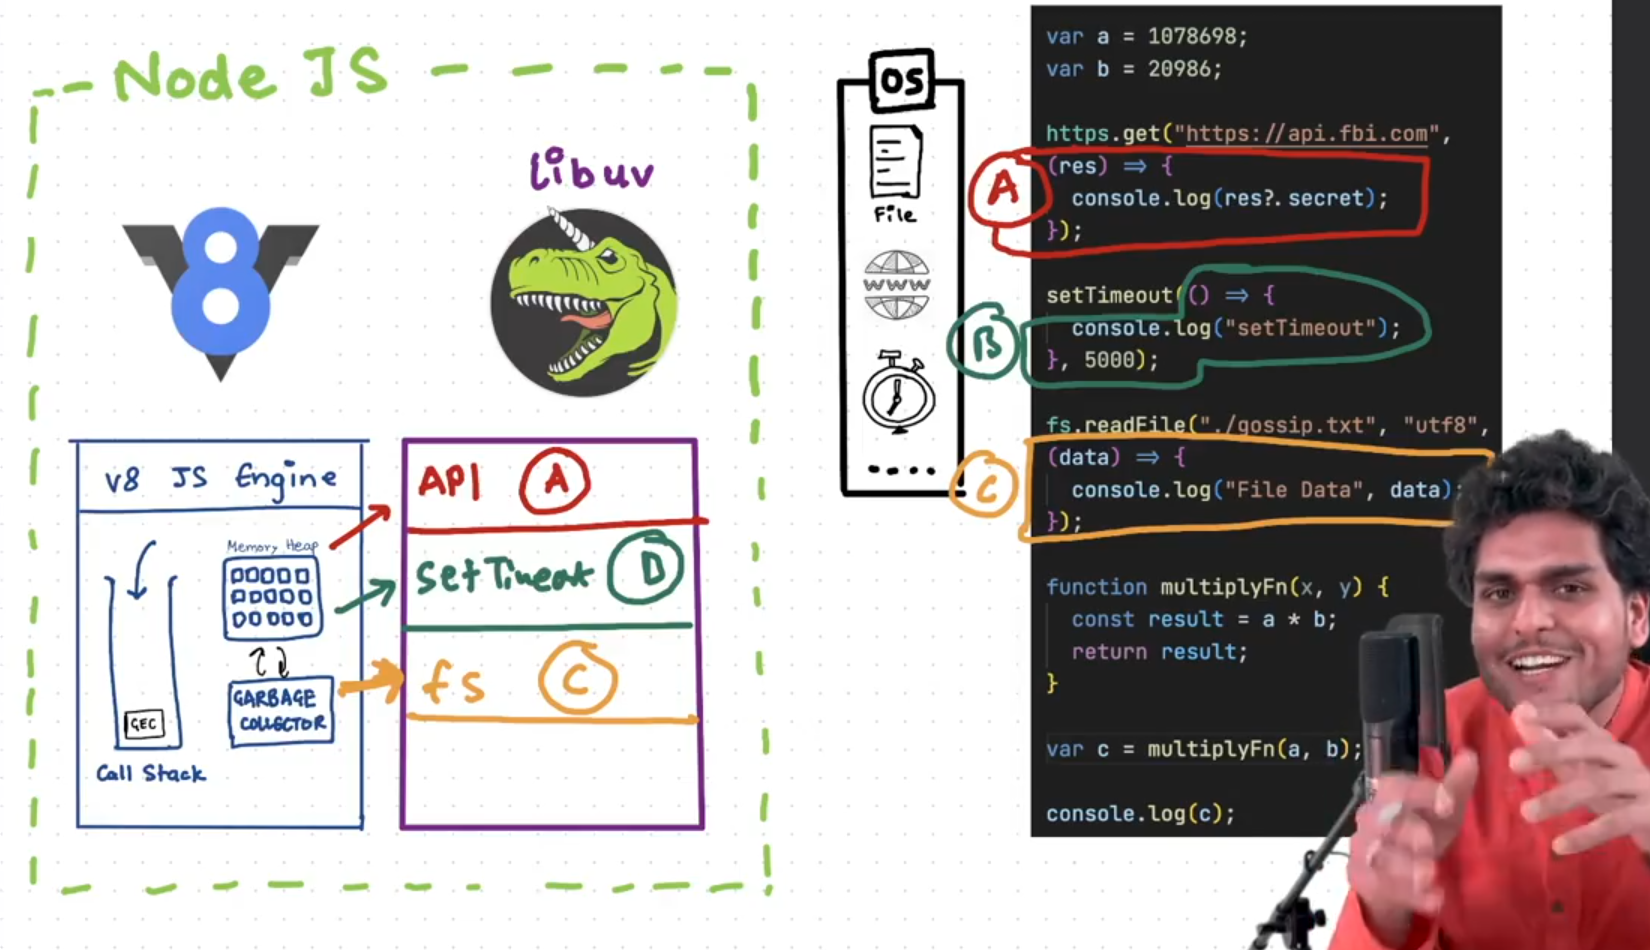 Node JS
libuv
8
V8 JS Engine
Memory Heap
GARBAGE
COLLECTOR
GEC
Call Stack
API A
SetTimeout B
fs C
OS
File
WWW
....
A
B
C
var a = 1078698;
var b = 20986;
https.get("https://api.fbi.com",
(res) => {
console.log(res?.secret);
});
setTimeout(() => {
console.log("setTimeout");
}, 5000);
fs.readFile("./gossip.txt", "utf8",
(data) => {
console.log("File Data", data);
});
function multiplyFn(x, y) {
const result = a * b;
return result;
}
var c = multiplyFn(a, b);
console.log(c);